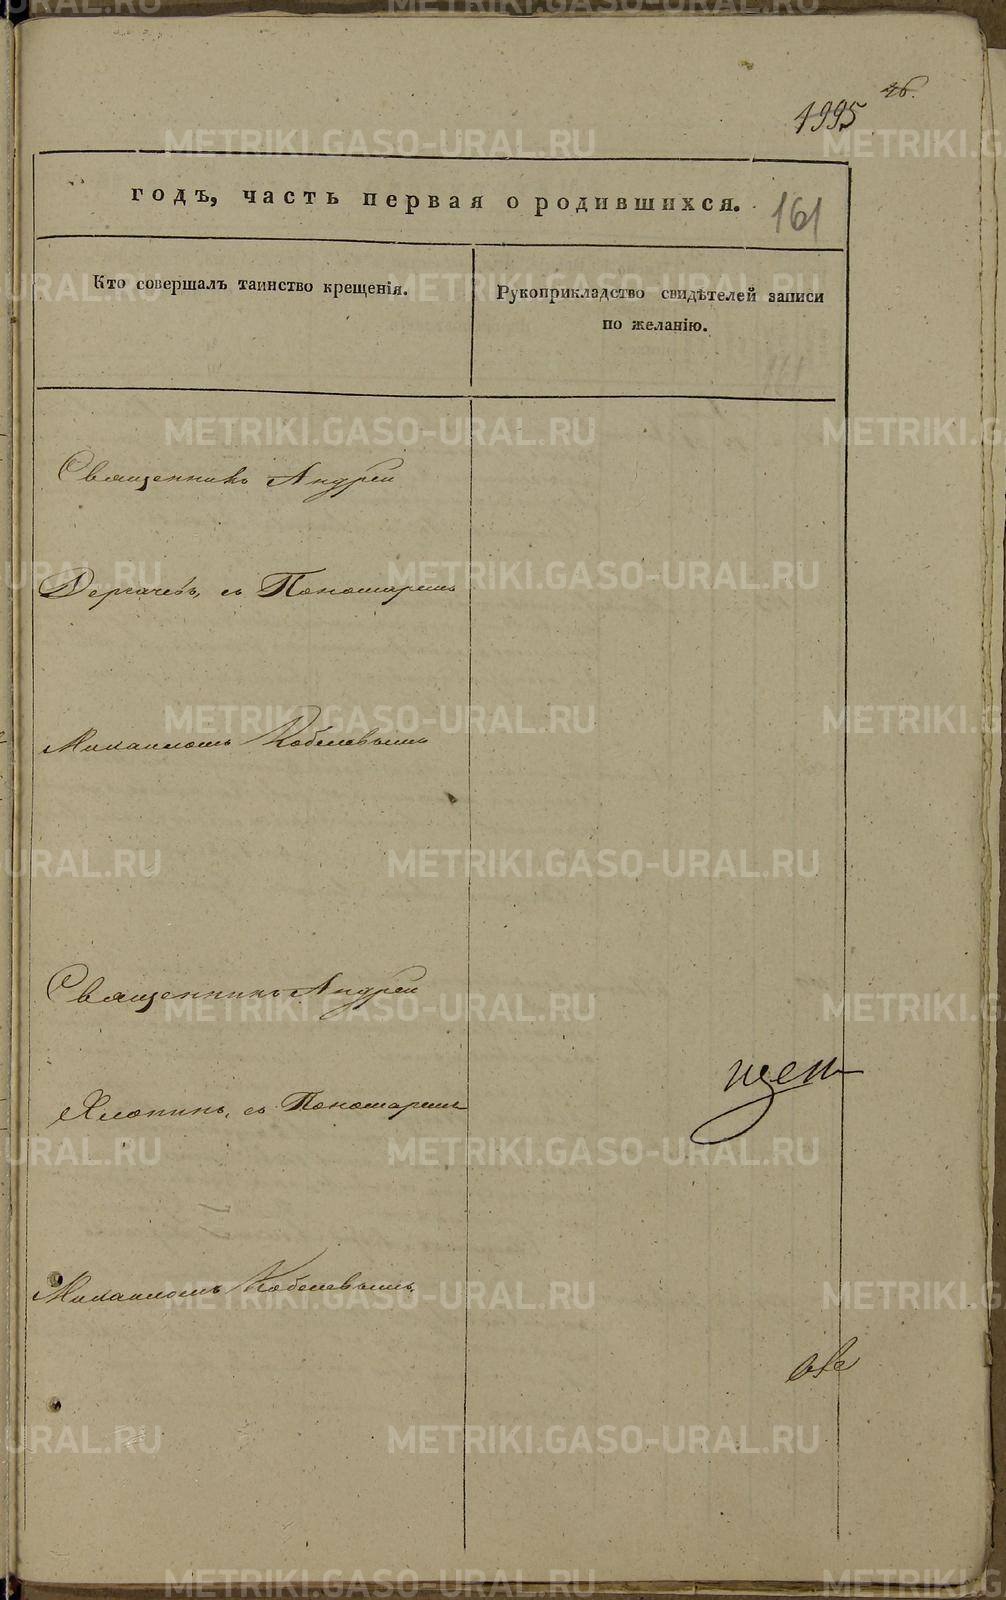 46.
1995
годъ, часть первая о родившихся.
161
Кто совершалъ таинство крещенія.
Рукоприкладство свидѣтелей записи
по желанію.
Священникъ Андрей
Дергачевъ, съ Пономаремъ
Михаиломъ Кобелевымъ
Священникъ Андрей
Хлопинъ, съ Пономаремъ
Михаиломъ Кобелевымъ.
щен
METRIKI.GASO-URAL.RU